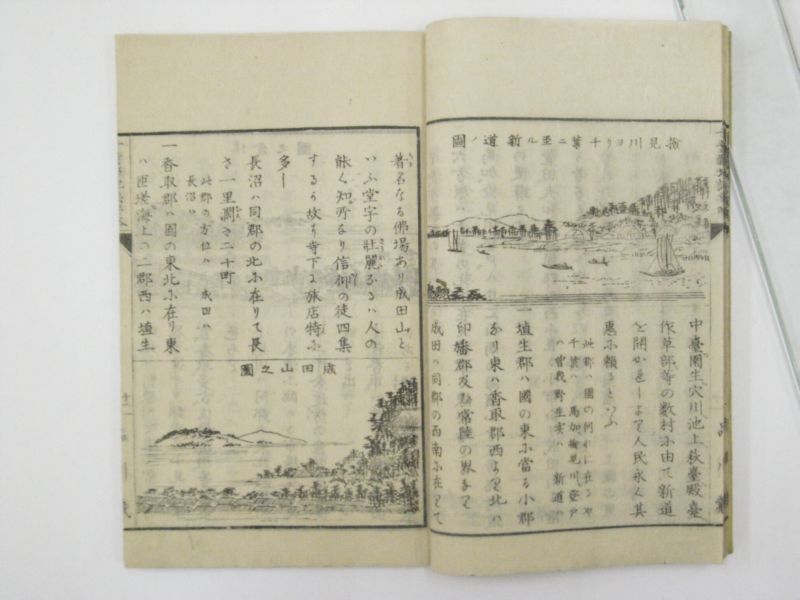 検見川ヨリ千葉ニ至ル新道ノ圖
中臺園生穴川池上萩臺殿臺
作草部等の数村に由て新道
を開かせしより人民永く其
惠に頼るといふ
此郡ハ國の何れに在るや
千葉ハ 馬加検見川登戸
ハ 曽我野生実ハ 新道ハ
一埴生郡ハ國の東に當る小郡
なり東ハ香取郡西より北ハ
印旛郡及び常陸の界なり
成田ハ同郡の西南に在りて
著名なる佛場あり成田山と
いふ堂宇の壮麗なるハ人の
能く知所なり信仰の徒四集
するが故に寺下に旅店特に
多し
長沼ハ同郡の北に在りて長
さ一里濶さ二十町
此郡の方位ハ 成田ハ
長沼ハ
一香取郡ハ國の東北に在り東
ハ匝瑳海上の二郡西ハ埴生
成田山之圖